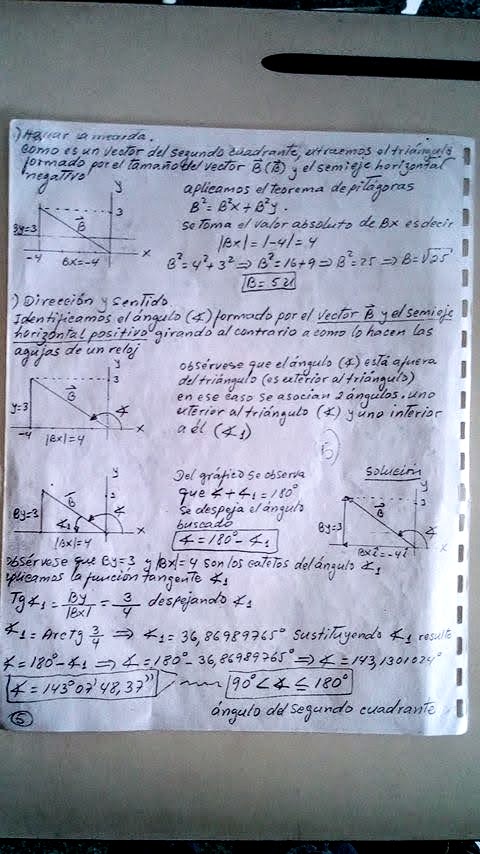 ) Hallar la medida.
como es un vector del segundo cuadrante, extraemos el triángulo
formado por el tamaño del vector B (B) y el semieje horizontal
negativo
aplicamos el teorema de pitágoras
B² = B²x + B²y.
se toma el valor absoluto de Bx es decir
|Bx| = |-4| = 4
B² = 4² + 3² ⇒ B² = 16 + 9 ⇒ B² = 25 ⇒ B = √25
B = 5u
y
3
By=3
B
x
-4
Bx=-4
) Dirección y sentido.
Identificamos el ángulo (∡) formado por el vector B y el semieje
horizontal positivo girando al contrario a como lo hacen las
agujas de un reloj
obsérvese que el ángulo (∡) está afuera
del triángulo (es exterior al triángulo)
en ese caso se asocian 2 ángulos. uno
exterior al triángulo (∡) y uno interior
a él (∡₁)
y
3
y=3
B
∡
x
-4
|Bx|=4
Del gráfico se observa
que ∡ + ∡₁ = 180°
se despeja el ángulo
buscado
∡ = 180° - ∡₁
y
3
By=3
B
∡₁
∡
x
-4
|Bx|=4
solución
y
3
B
By=3
∡
x
obsérvese que By=3 y |Bx|=4 son los catetos del ángulo ∡₁
aplicamos la función tangente ∡₁
Tg∡₁ = By/|Bx| = 3/4 despejando ∡₁
∡₁ = Arctg 3/4 ⇒ ∡₁ = 36,86989765° sustituyendo ∡₁ resulte
∡ = 180° - ∡₁ ⇒ ∡ = 180° - 36,86989765° ⇒ ∡ = 143,1301024°
∡ = 143°07'48,37'' 90° < ∡ ≤ 180°
5
ángulo del segundo cuadrante